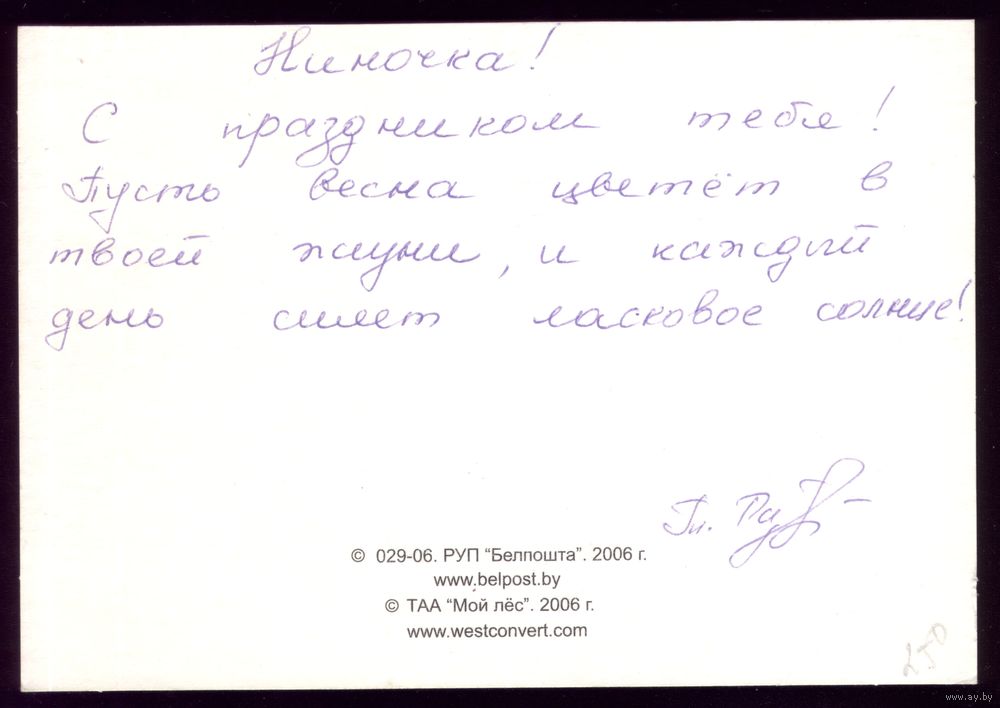 Ниночка!
С праздником тебя!
Пусть весна цветёт в
твоей жизни, и каждый
день сияет ласковое солнце!
© 029-06. РУП “Белпошта”. 2006 г.
www.belpost.by
© ТАА “Мой лёс”. 2006 г.
www.westconvert.com
250
www.ay.by